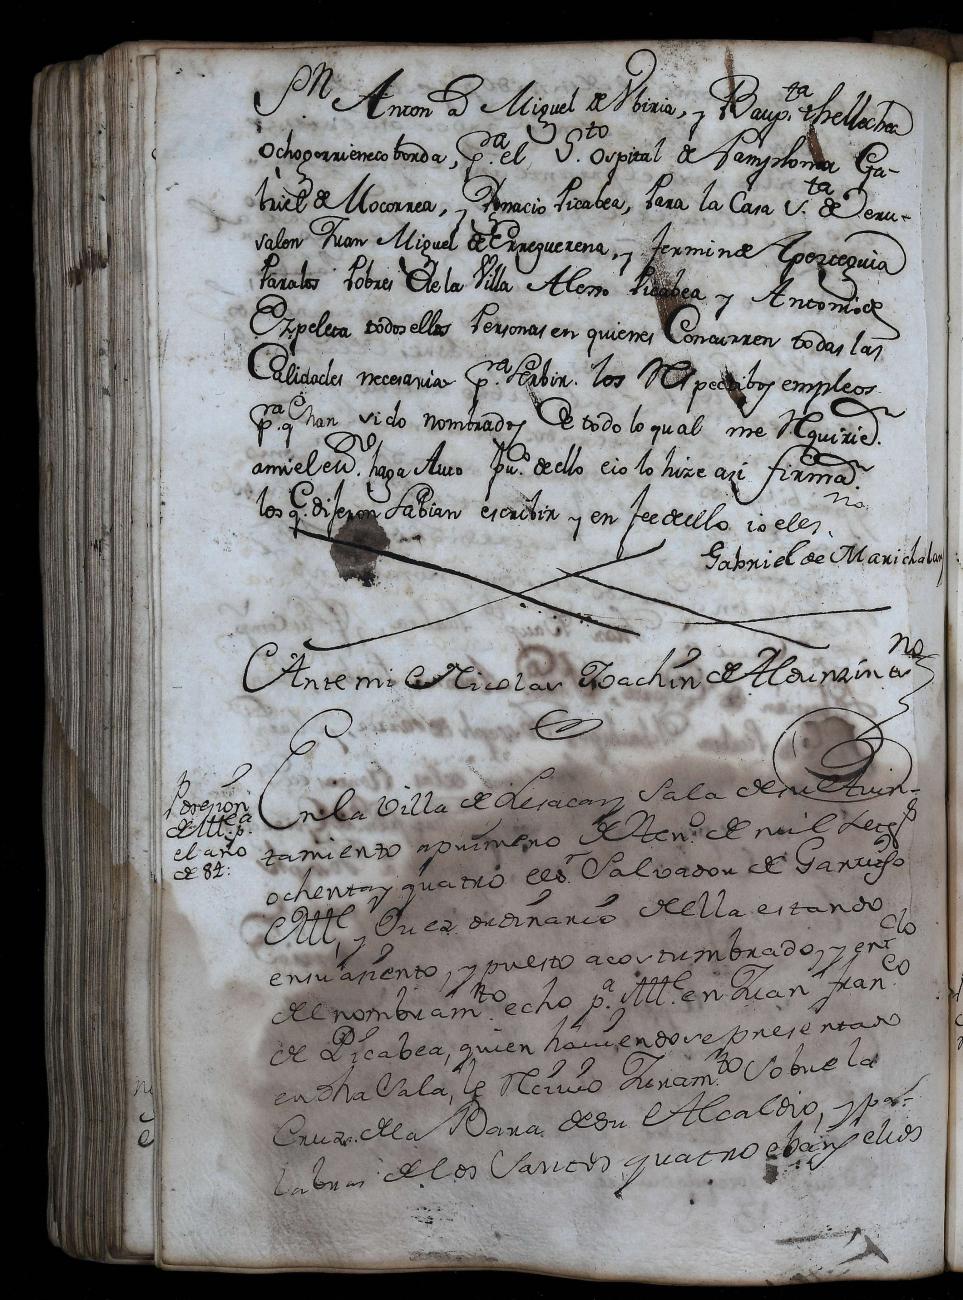 Sn Anton a Miguel de Ybiria, y Baup.ta thellechea
ochogorrieneco borda, p.ra el S.to Ospital de Pamplona Ga-
briel de Mocorrea, y Ygnacio Picabea, Para la Casa S.ta de Jeru-
salen Juan Miguel de Erreguerena, y fermin de Apezteguia
Para los Pobres de la Villa Alexo Picabea y Antonio de
Ezpeleta todos ellos Personas en quienes Concurren todas las
Calidades necesarias p.ra serbir los Respectibos empleos
p.a q.e han sido nombrados De todo lo qual me Requirie.
ami el ess.no haga Auto pu.co de ello eio lo hize asi firma.
los q.e dijeron sabian escribir y en fee de ello io el es.no
Gabriel de Marichalar
Ante mi Nicolas Joachin de Aldunzin es.no
Posesion
de Alld.e
p.a
el año
de 84:
En la Villa de Lesaca y Sala de su Ayun-
tamiento a primero de Hen.o de mil setez.s
ochenta y quatro el s.r Salvador de Gartiz
Alld.e y Juez ordinario de ella estando
en su asiento, y puesto acostumbrado, y en
del nombram.to echo p.a Alld.e en Juan Fran.co
de Picabea, quien haviendose presentado
en dha Sala, le Recivio Juram.to Sobre la
Cruz de la Bara de su Alcaldio, y pa-
labras de los Santos quatro ebangelios